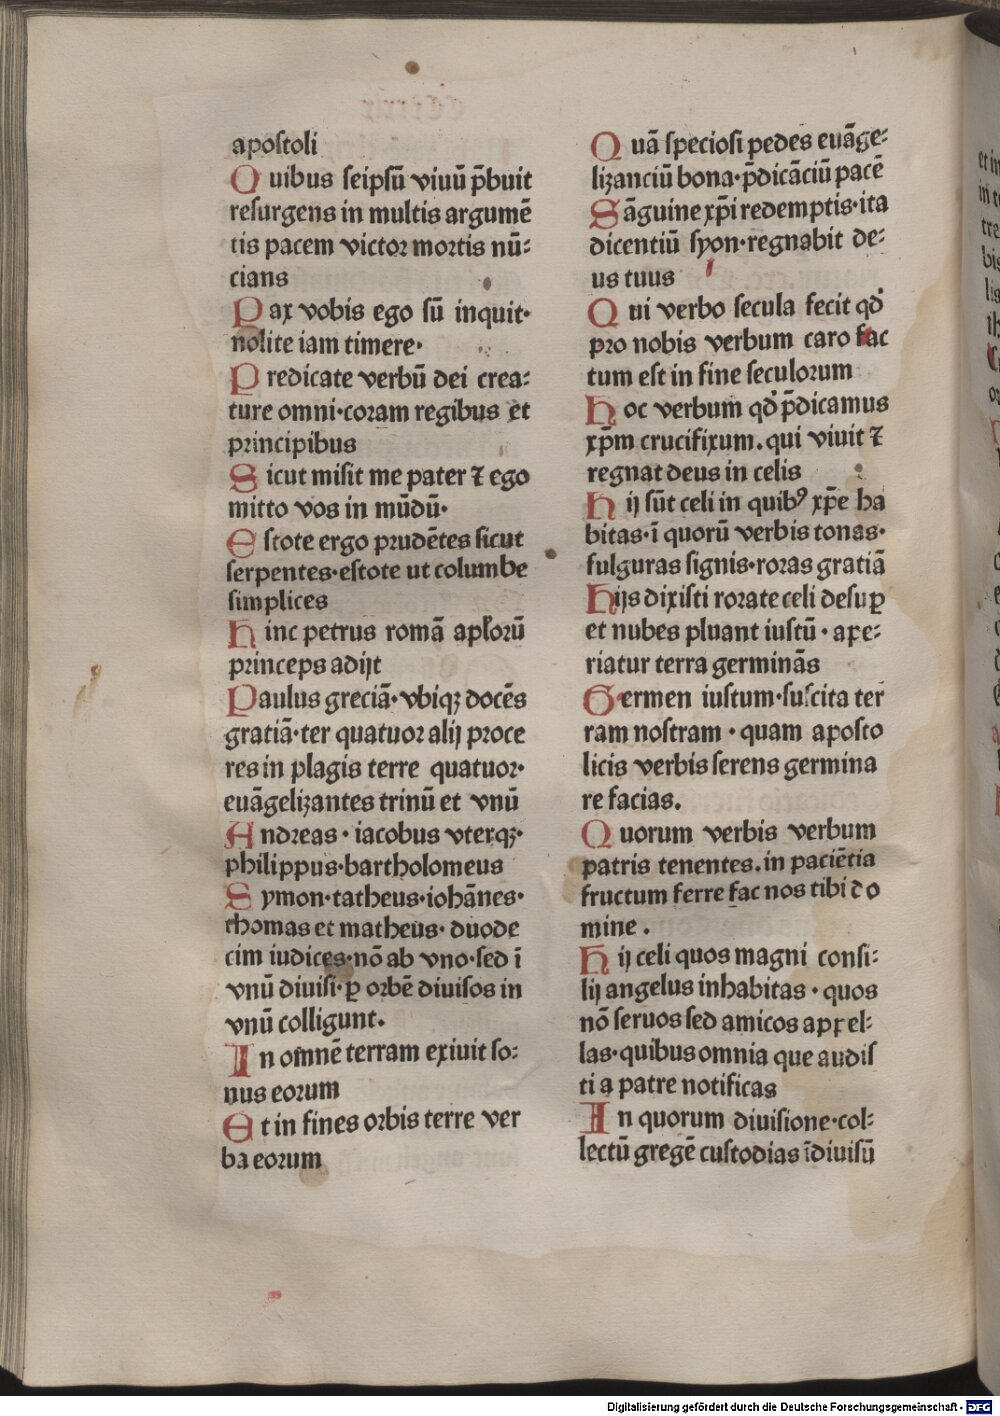 apostoli
Quibus seipsū viuū p̄buit
resurgens in multis argumē
tis pacem victor mortis nū-
cians
Pax vobis ego sū inquit·
nolite iam timere·
Predicate verbū dei crea-
ture omni·coram regibus et
principibus
Sicut misit me pater ⁊ ego
mitto vos in mūdū·
Estote ergo prudētes sicut
serpentes·estote ut columbe
simplices
Hinc petrus romā apl'orū
princeps adijt
Paulus greciā·vbiqꝫ docēs
gratiā·ter quatuor alij proce
res in plagis terre quatuor·
euāgelizantes trinū et vnū
Andreas·iacobus vterqꝫ·
philippus·bartholomeus
Symon·tatheus·iohānes·
thomas et matheus·duode
cim iudices·nō ab vno·sed ī
vnū diuisi·ꝑ orbē diuisos in
vnū colligunt.
In omnē terram exiuit so-
nus eorum
Et in fines orbis terre ver
ba eorum
Quā speciosi pedes euāge-
lizanciū bona·p̄dicāciū pacē
Sāguine xp̄i redemptis·ita
dicentiū syon·regnabit de-
us tuus
Qui verbo secula fecit qd'
pro nobis verbum caro fac
tum est in fine seculorum
Hoc verbum qd' p̄dicamus
xp̄m crucifixum.qui viuit ⁊
regnat deus in celis
Hij sūt celi in quibꝰ xp̄e ha
bitas·ī quorū verbis tonas·
fulguras signis·roras gratiā
Hijs dixisti rorate celi desuꝑ
et nubes pluant iustū·ape-
riatur terra germinās
Germen iustum·suscita ter
ram nostram·quam aposto
licis verbis serens germina
re facias.
Quorum verbis verbum
patris tenentes.in paciētia
fructum ferre fac nos tibi do
mine.
Hij celi quos magni consi-
lij angelus inhabitas·quos
nō seruos sed amicos appel-
las·quibus omnia que audis
ti a patre notificas
In quorum diuisione·col-
lectū gregē custodias īdiuisū
Digitalisierung gefördert durch die Deutsche Forschungsgemeinschaft - DFG